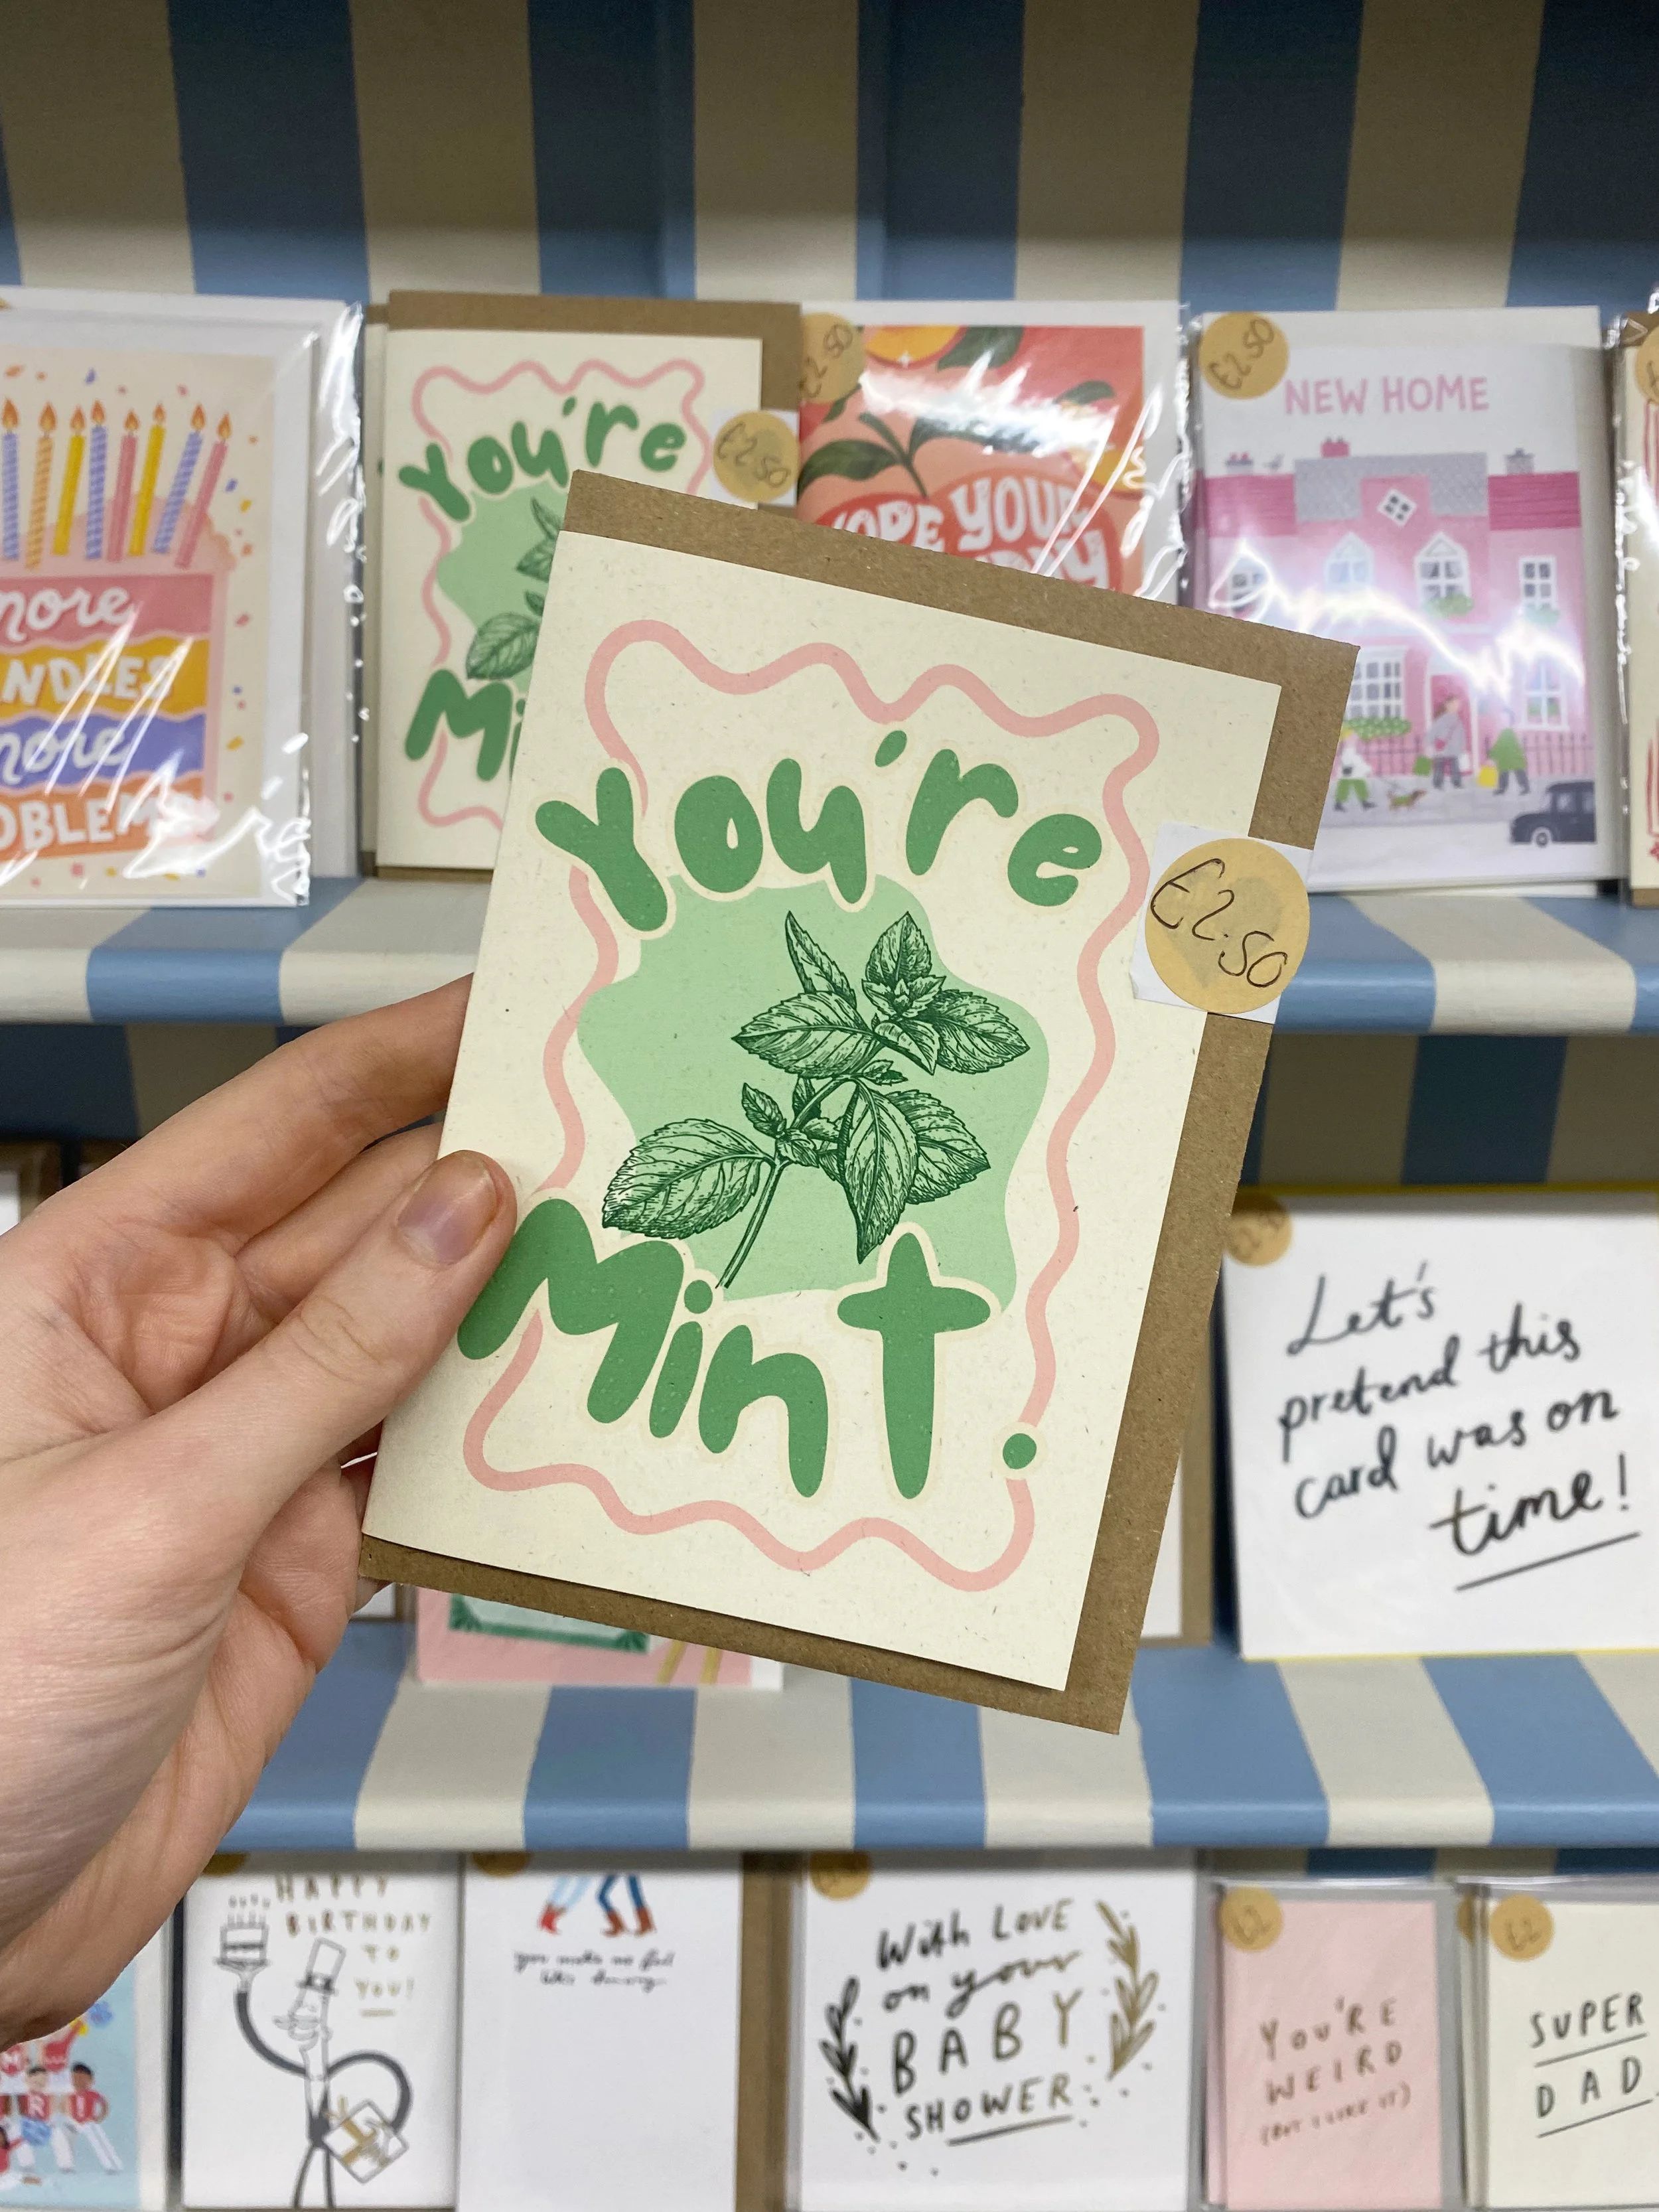 You're
Mint.
£2.50
more
more
You're
£2.50
£2.50
YOUR
£2.50
NEW HOME
Let's
pretend this
card was on
time!
HAPPY
BIRTHDAY
TO
YOU!
you make me feel
like
With LOVE
on your
BABY
SHOWER
£2
YOU'RE
WEIRD
(BUT I LIKE IT)
£2
SUPER
DAD